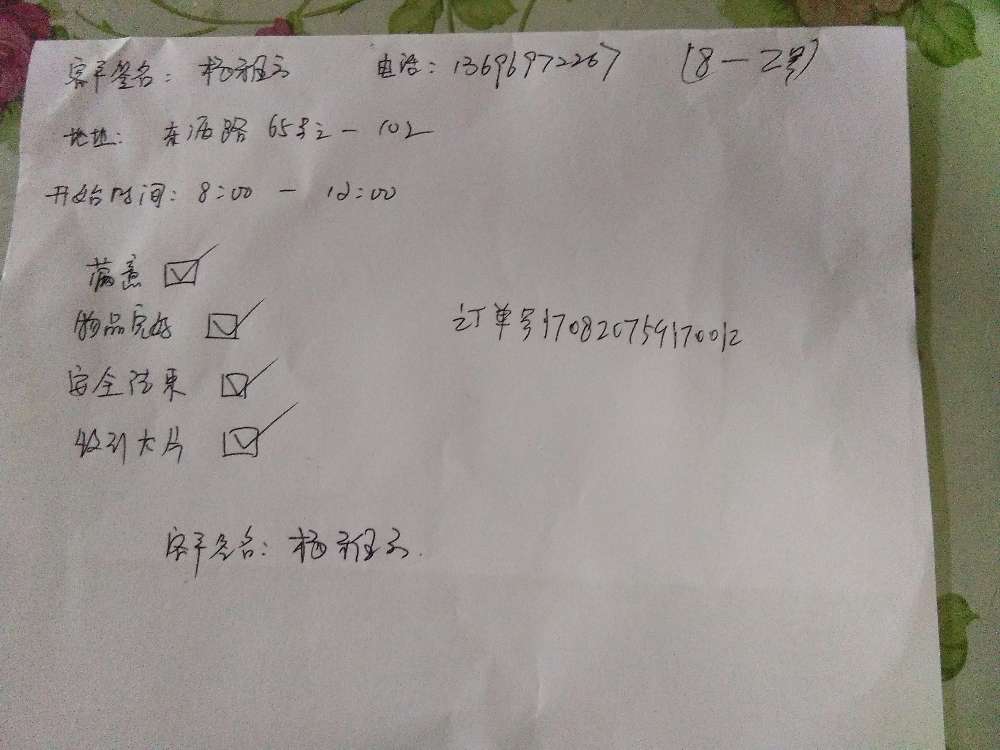 客户签名: 杨雅云 电话: 13696972267 (8-2号)
地址: 东沥路 65号之-102
开始时间: 8:00 - 12:00
满意 ☑
物品完好 ☑
订单号170820759170012
安全结果 ☑
大片 ☑
客户签名: 杨雅云